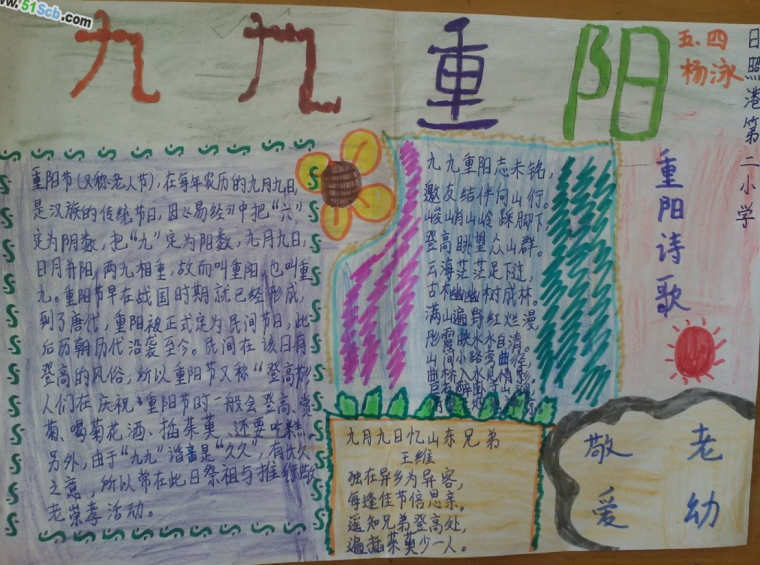 www.51Scb.com
九九重阳
五.四
杨泳
日照港第二小学
重阳节(又称老人节),在每年农历的九月九日,
是汉族的传统节日,因《易经》中把“六”
定为阴数,把“九”定为阳数,九月九日,
日月并阳,两九相重,故而叫重阳,也叫重
九。重阳节早在战国时期就已经形成,
到了唐代,重阳被正式定为民间节日,此
后历朝历代沿袭至今。民间在该日有
登高的风俗,所以重阳节又称“登高节”
人们在庆祝重阳节时一般会登高、赏
菊、喝菊花酒、插茱萸、还要吃糕
另外,由于“九九”谐音是“久久”,有长久
之意,所以常在此日祭祖与推行敬
老崇孝活动。
九九重阳志未铭,
邀友结伴向山行。
峻峭山岭踩脚下
登高眺望众山群。
云海茫茫足下过,
古木幽幽树成林。
满山遍野红烂漫
重阳诗歌
九月九日忆山东兄弟
王维
独在异乡为异客,
每逢佳节倍思亲。
遥知兄弟登高处,
遍插茱萸少一人。
敬老
爱幼